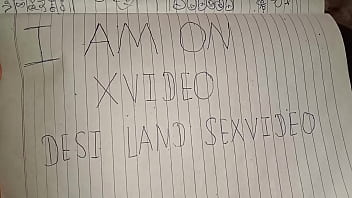 I AM ON
XVIDEO
DESI LAND SEXVIDEO